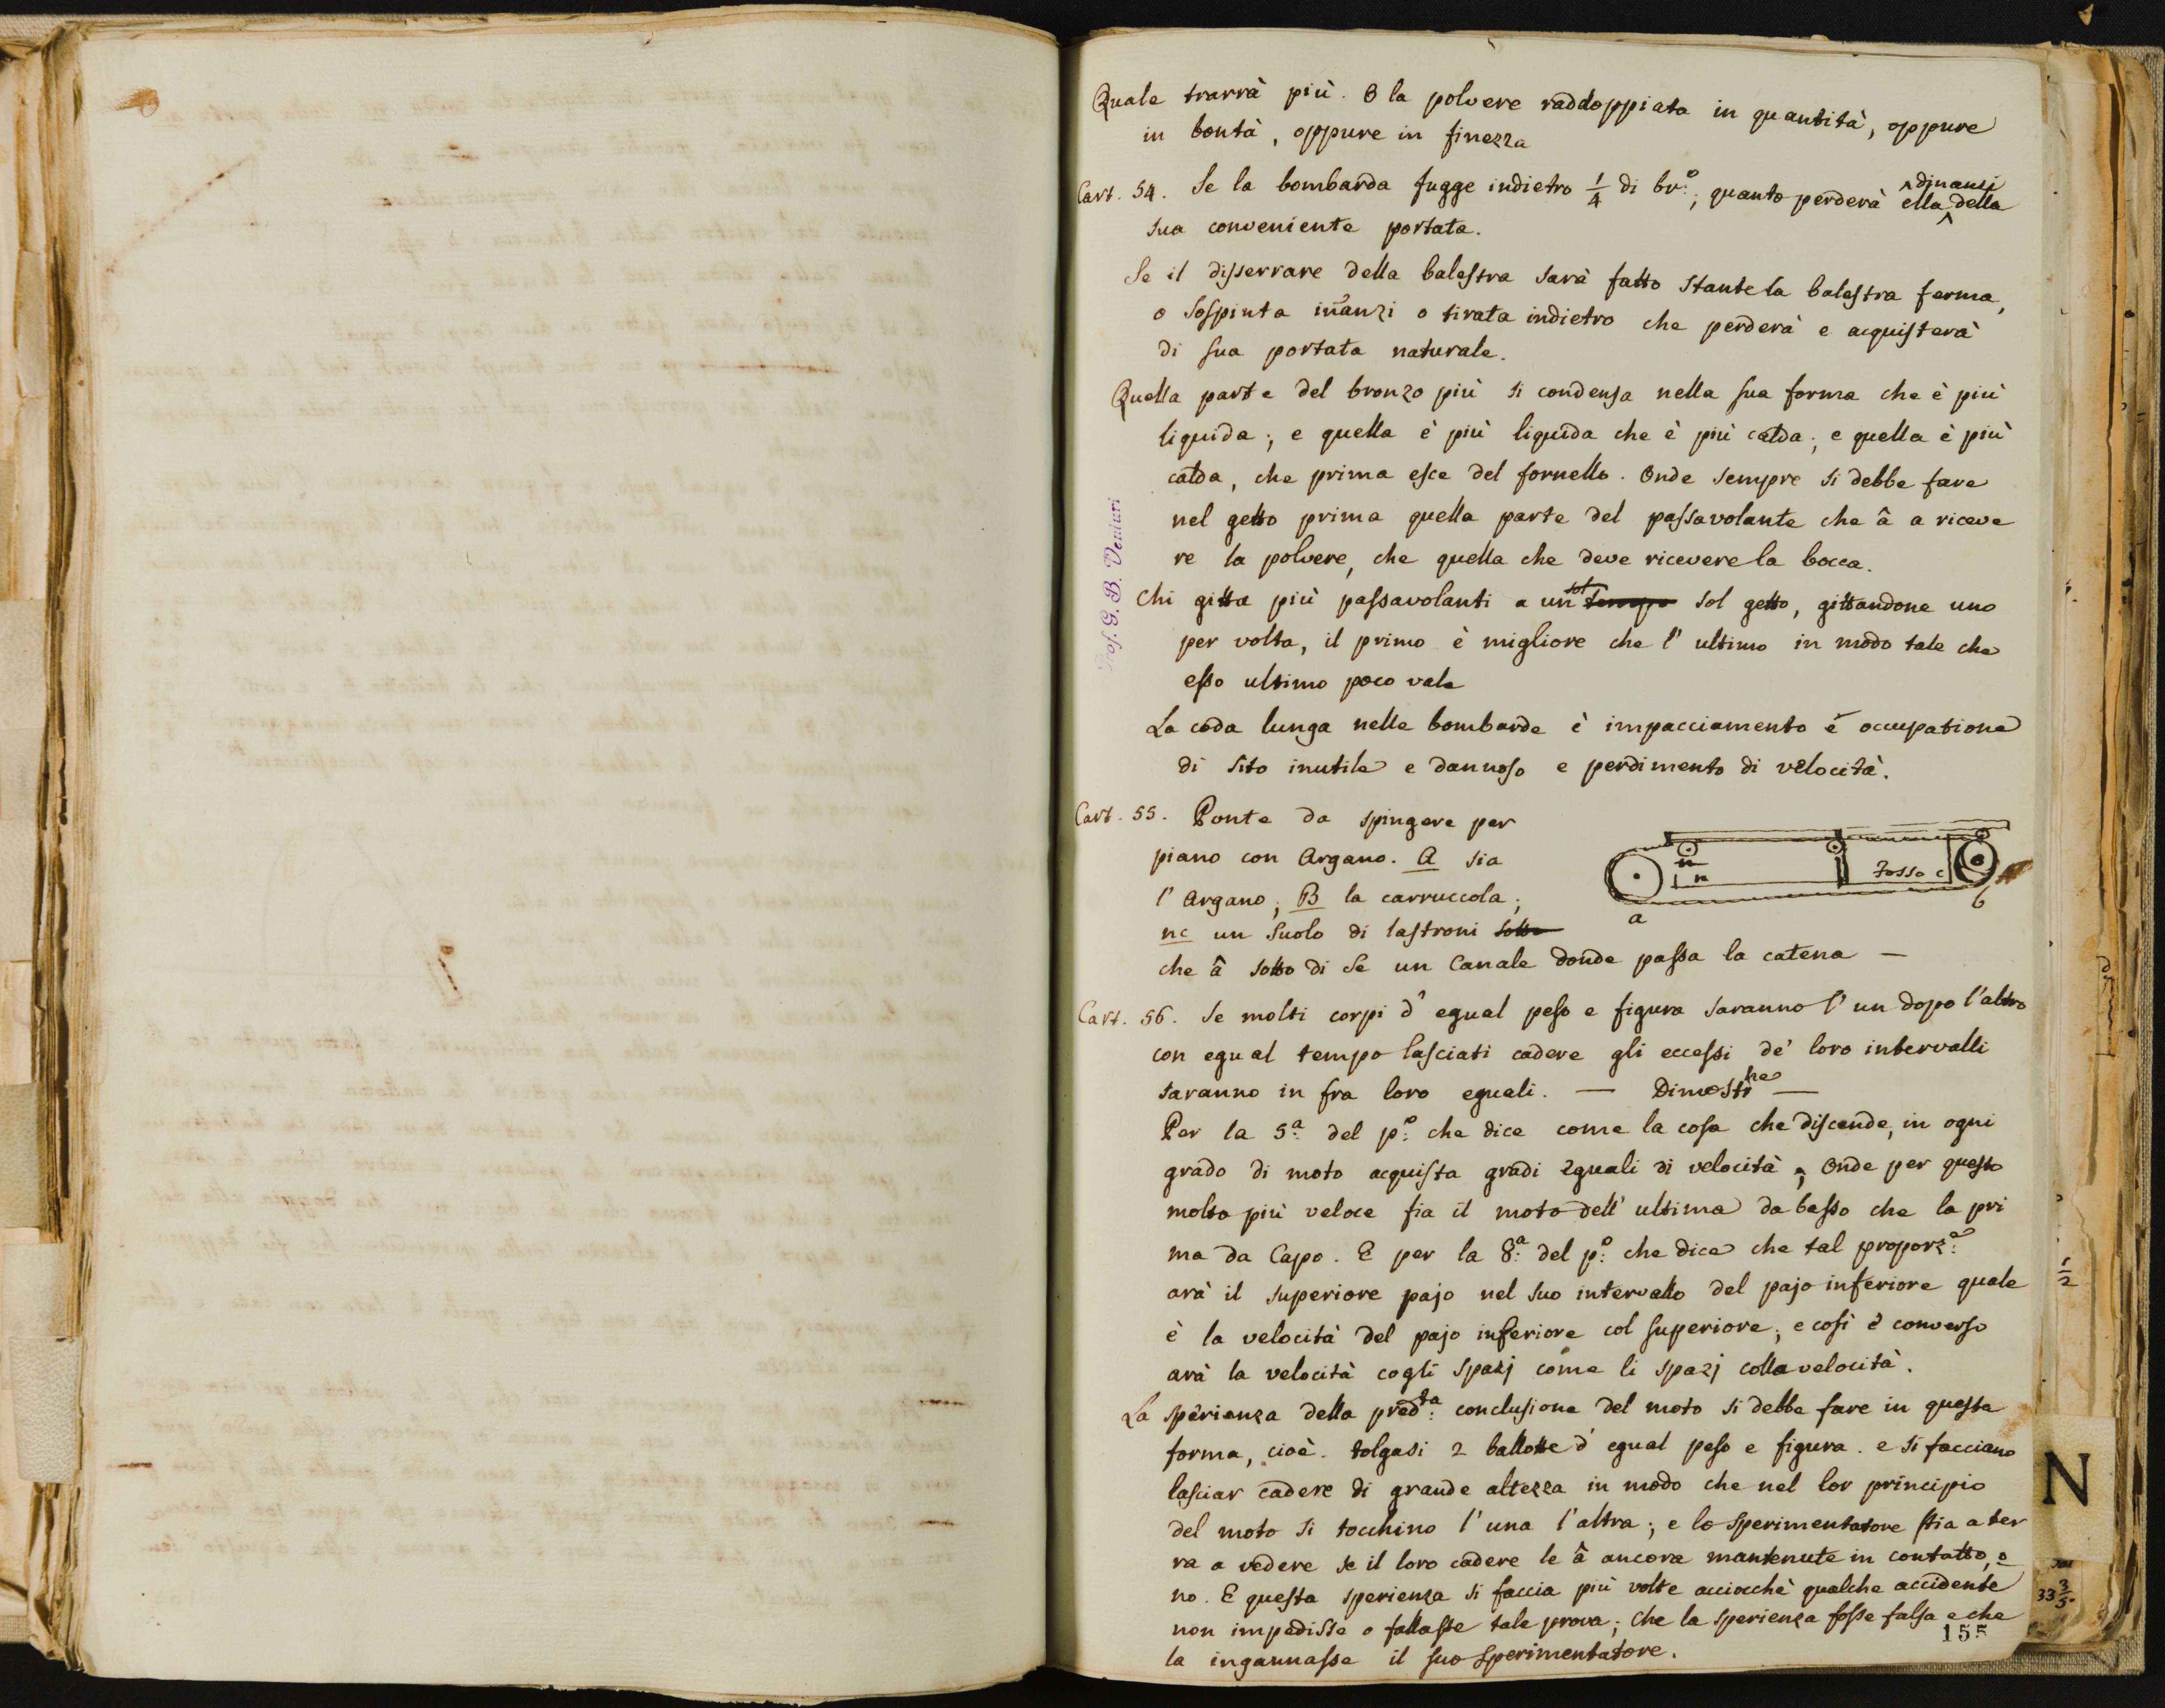 Quale trarrà più. O la polvere raddoppiata in quantità, oppure
in bontà, oppure in finezza
Cart. 54. Se la bombarda fugge indietro 1/4 di br.º; quanto perderà ella dinanzi della
sua conveniente portata.
Se il disserrare della balestra sarà fatto stante la balestra ferma,
o sospinta inanzi o tirata indietro che perderà e acquisterà
di sua portata naturale.
Quella parte del bronzo più si condensa nella sua forma che è più
liquida; e quella è più liquida che è più calda; e quella è più
calda, che prima esce del fornello. Onde sempre si debbe fare
nel getto prima quella parte del passavolante che â a riceve
re la polvere, che quella che deve ricevere la bocca.
Chi gitta più passavolanti a un sol tempo sol getto, gittandone uno
per volta, il primo è migliore che l'ultimo in modo tale che
esso ultimo poco vale
La coda lunga nelle bombarde è impacciamento è occupatione
di sito inutile e dannoso e perdimento di velocità.
Prof. G. B. Venturi
Cart. 55. Ponte da spingere per
piano con Argano. A sia
l'Argano; B la carruccola;
nc un suolo di lastroni sotto
che â sotto di se un Canale donde passa la catena —
m
n
Fosso c
a
b
Cart. 56. Se molti corpi d'egual peso e figura saranno l'un dopo l'altro
con egual tempo lasciati cadere gli eccessi de' loro intervalli
saranno in fra loro eguali. — Dimostrne —
Per la 5.ª del p.º che dice come la cosa che discende, in ogni
grado di moto acquista gradi eguali di velocità; Onde per questo
molto più veloce fia il moto dell'ultima da basso che la pri
ma da Capo. E per la 8.ª del p.º che dice che tal proporz.e
arà il superiore pajo nel suo intervallo del pajo inferiore quale
è la velocità del pajo inferiore col superiore; e così è converso
arà la velocità cogli spazj come li spazj colla velocità.
La sperienza della pred.ta conclusione del moto si debbe fare in questa
forma, cioè. tolgasi 2 ballotte d'egual peso e figura. e si facciano
lasciar cadere di grande altezza in modo che nel lor principio
del moto si tocchino l'una l'altra; e lo sperimentatore stia a ter
ra a vedere se il loro cadere le â ancora mantenute in contatto, o
no. E questa sperienza si faccia più volte acciocchè qualche accidente
non impedisse o fallasse tale prova; che la sperienza fosse falsa e che
la ingannasse il suo sperimentatore.
155
1/2
N
33 3/5